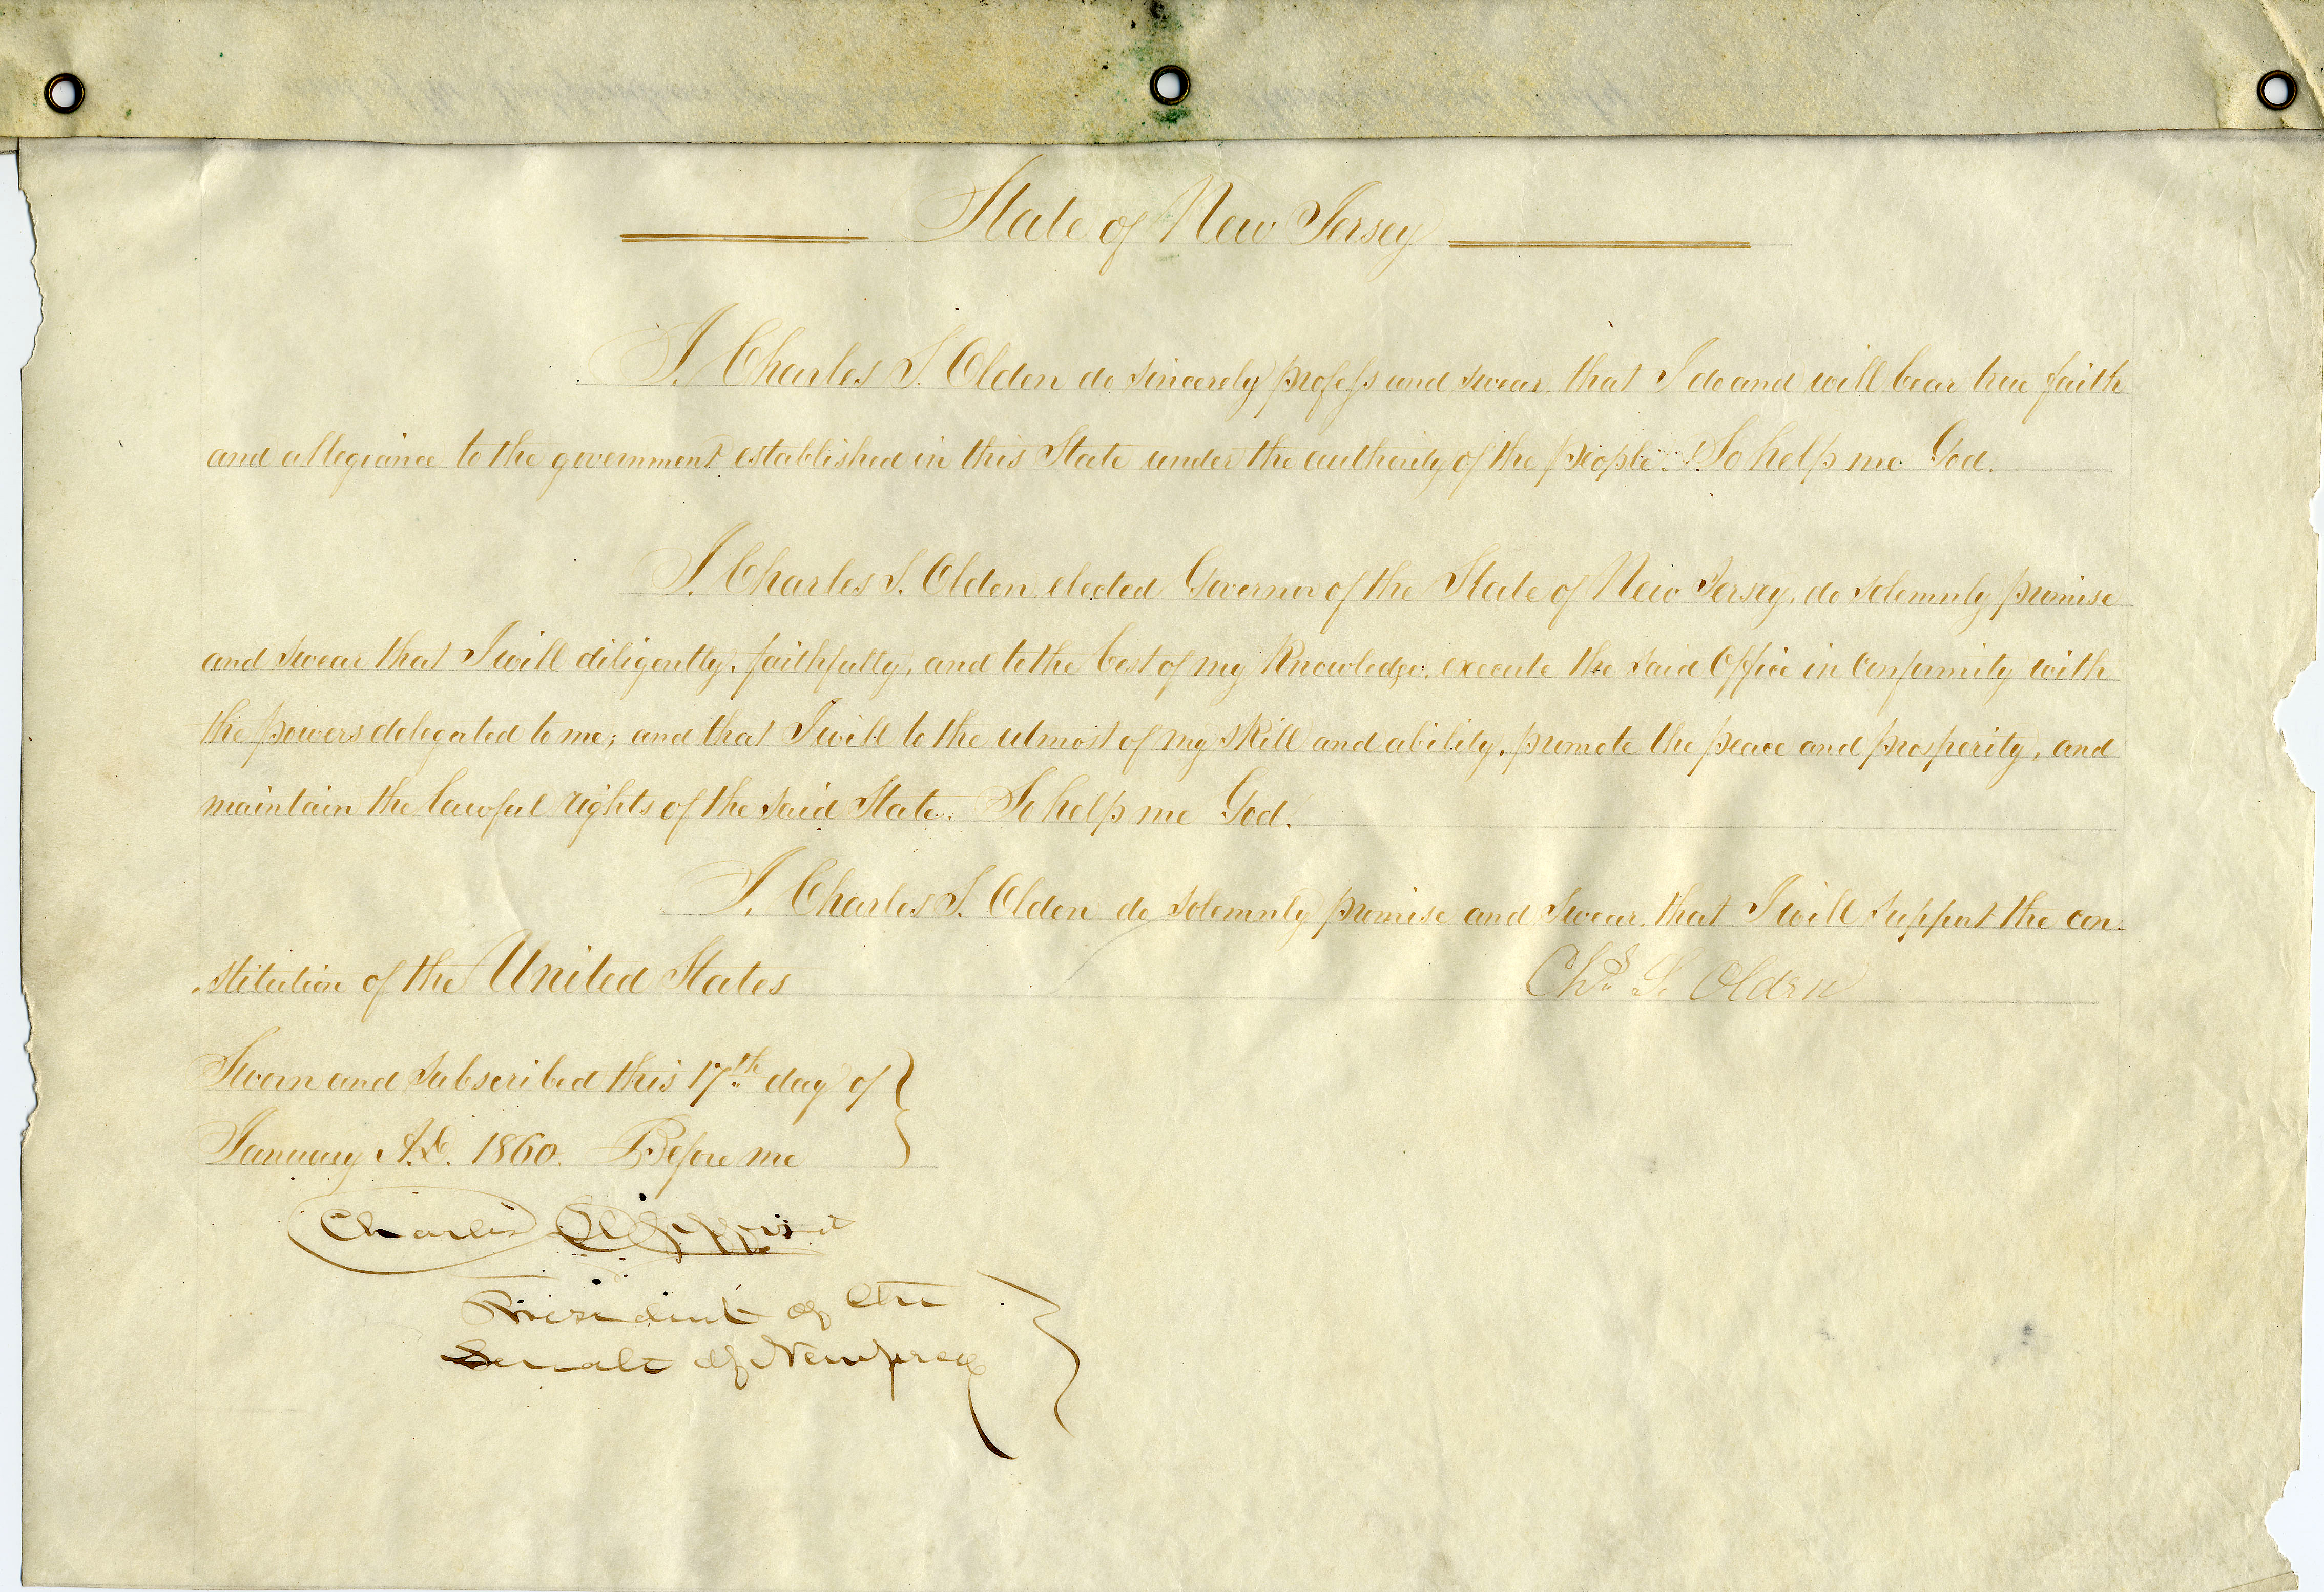 State of New Jersey
I. Charles S. Olden do sincerely profess and swear, that I do and will bear true faith
and allegiance to the government established in this State under the authority of the people. So help me God.
I. Charles S. Olden elected Governor of the State of New Jersey, do solemnly promise
and swear that I will diligently, faithfully, and to the best of my knowledge, execute the said Office in conformity with
the powers delegated to me; and that I will to the utmost of my skill and ability, promote the peace and prosperity, and
maintain the lawful rights of the said State. So help me God.
I. Charles S. Olden do solemnly promise and swear, that I will support the con-
stitution of the United States
Chs. S. Olden
Sworn and subscribed this 17th day of
January A.D. 1860. Before me
Charles
President of the
Senate of New Jersey